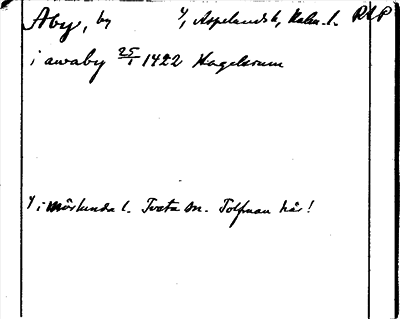 Åby, by 1/, Aspelands h, Kalm. l. RAP
i awaby 25/1 1422 Hagelsrum
1/ i Mörlunda l. Tveta sn. Tolfman här!